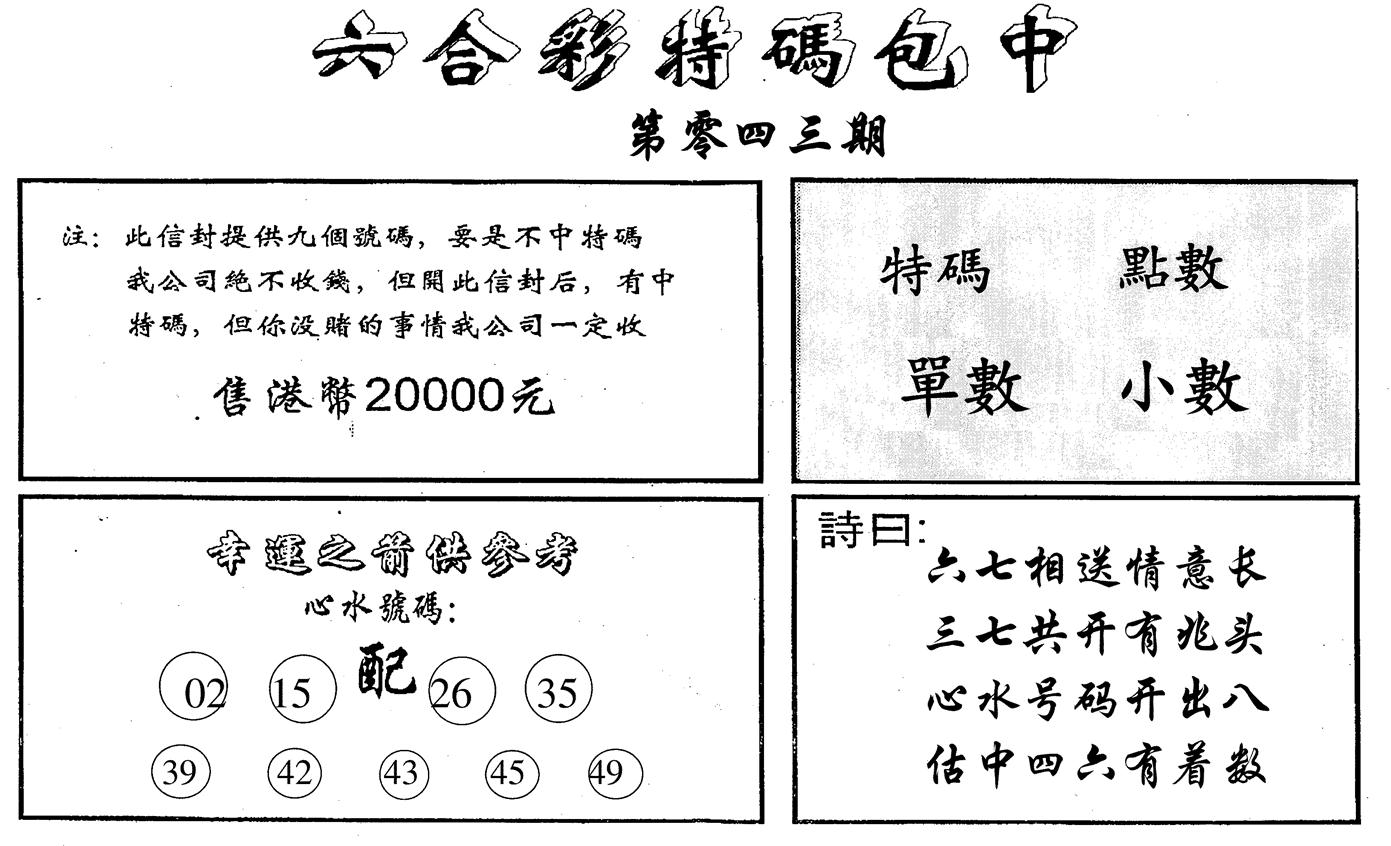 六合彩特碼包中
第零四三期
注：此信封提供九個號碼，要是不中特碼
我公司絕不收錢，但開此信封后，有中
特碼，但你没賭的事情我公司一定收
售港幣20000元
特碼 點數
單數 小數
幸運之箭供參考
心水號碼：
02 15 配 26 35
39 42 43 45 49
詩曰：
六七相送情意长
三七共开有兆头
心水号码开出八
估中四六有着数